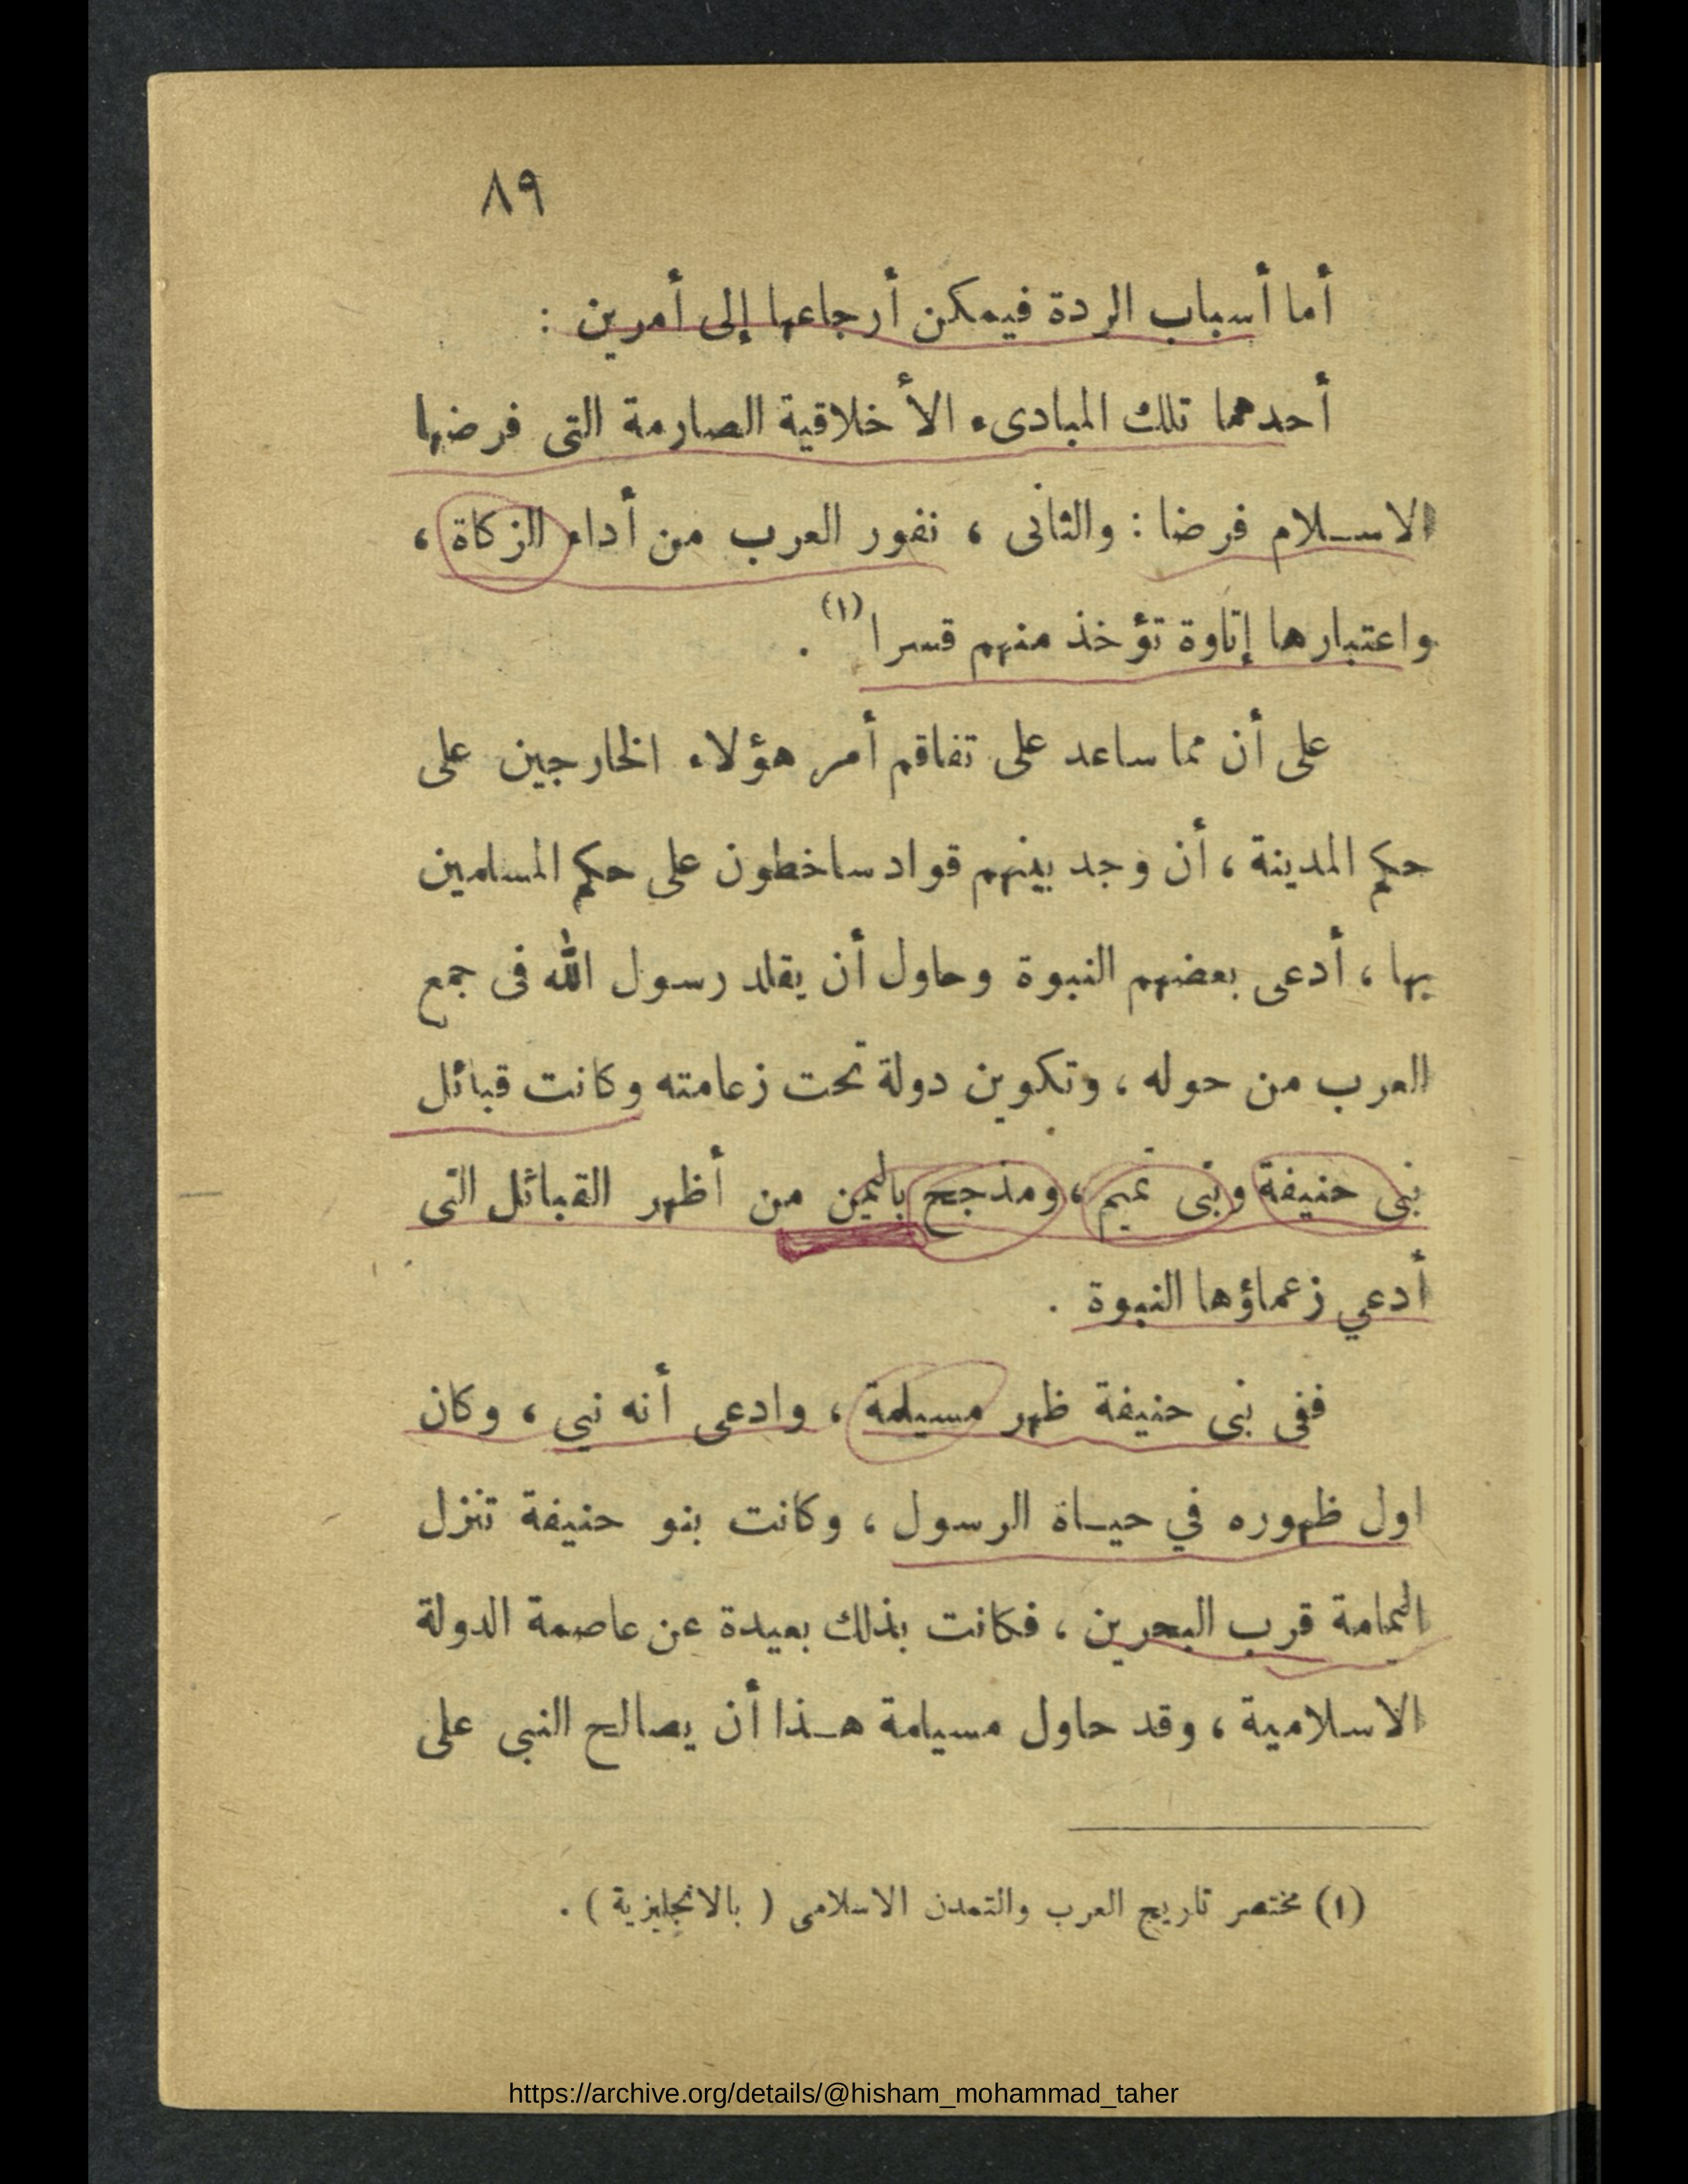 ٨٩
أما أسباب الردة فيمكن أرجاعها إلى أمرين :
أحدهما تلك المبادىء الأخلاقية الصارمة التى فرضها
الاسلام فرضا : والثانى ، نفور العرب من أداء الزكاة ،
واعتبارها إتاوة تؤخذ منهم قسرا (١) .
على أن مما ساعد على تفاقم أمر هؤلاء الخارجين على
حكم المدينة ، أن وجد بينهم قواد ساخطون على حكم المسلمين
بها ، أدعى بعضهم النبوة وحاول أن يقلد رسول الله فى جمع
العرب من حوله ، وتكوين دولة تحت زعامته وكانت قبائل
بنى حنيفة وبنى تميم ، ومذحج باليمن من أظهر القبائل التى
أدعي زعماؤها النبوة .
ففى بنى حنيفة ظهر مسيلمة ، وادعى أنه نبي ، وكان
اول ظهوره في حياة الرسول ، وكانت بنو حنيفة تنزل
اليمامة قرب البحرين ، فكانت بذلك بعيدة عن عاصمة الدولة
الاسلامية ، وقد حاول مسيلمة هذا أن يصالح النبى على
(١) مختصر تاريخ العرب والتمدن الاسلامى ( بالانجليزية ) .
https://archive.org/details/@hisham_mohammad_taher